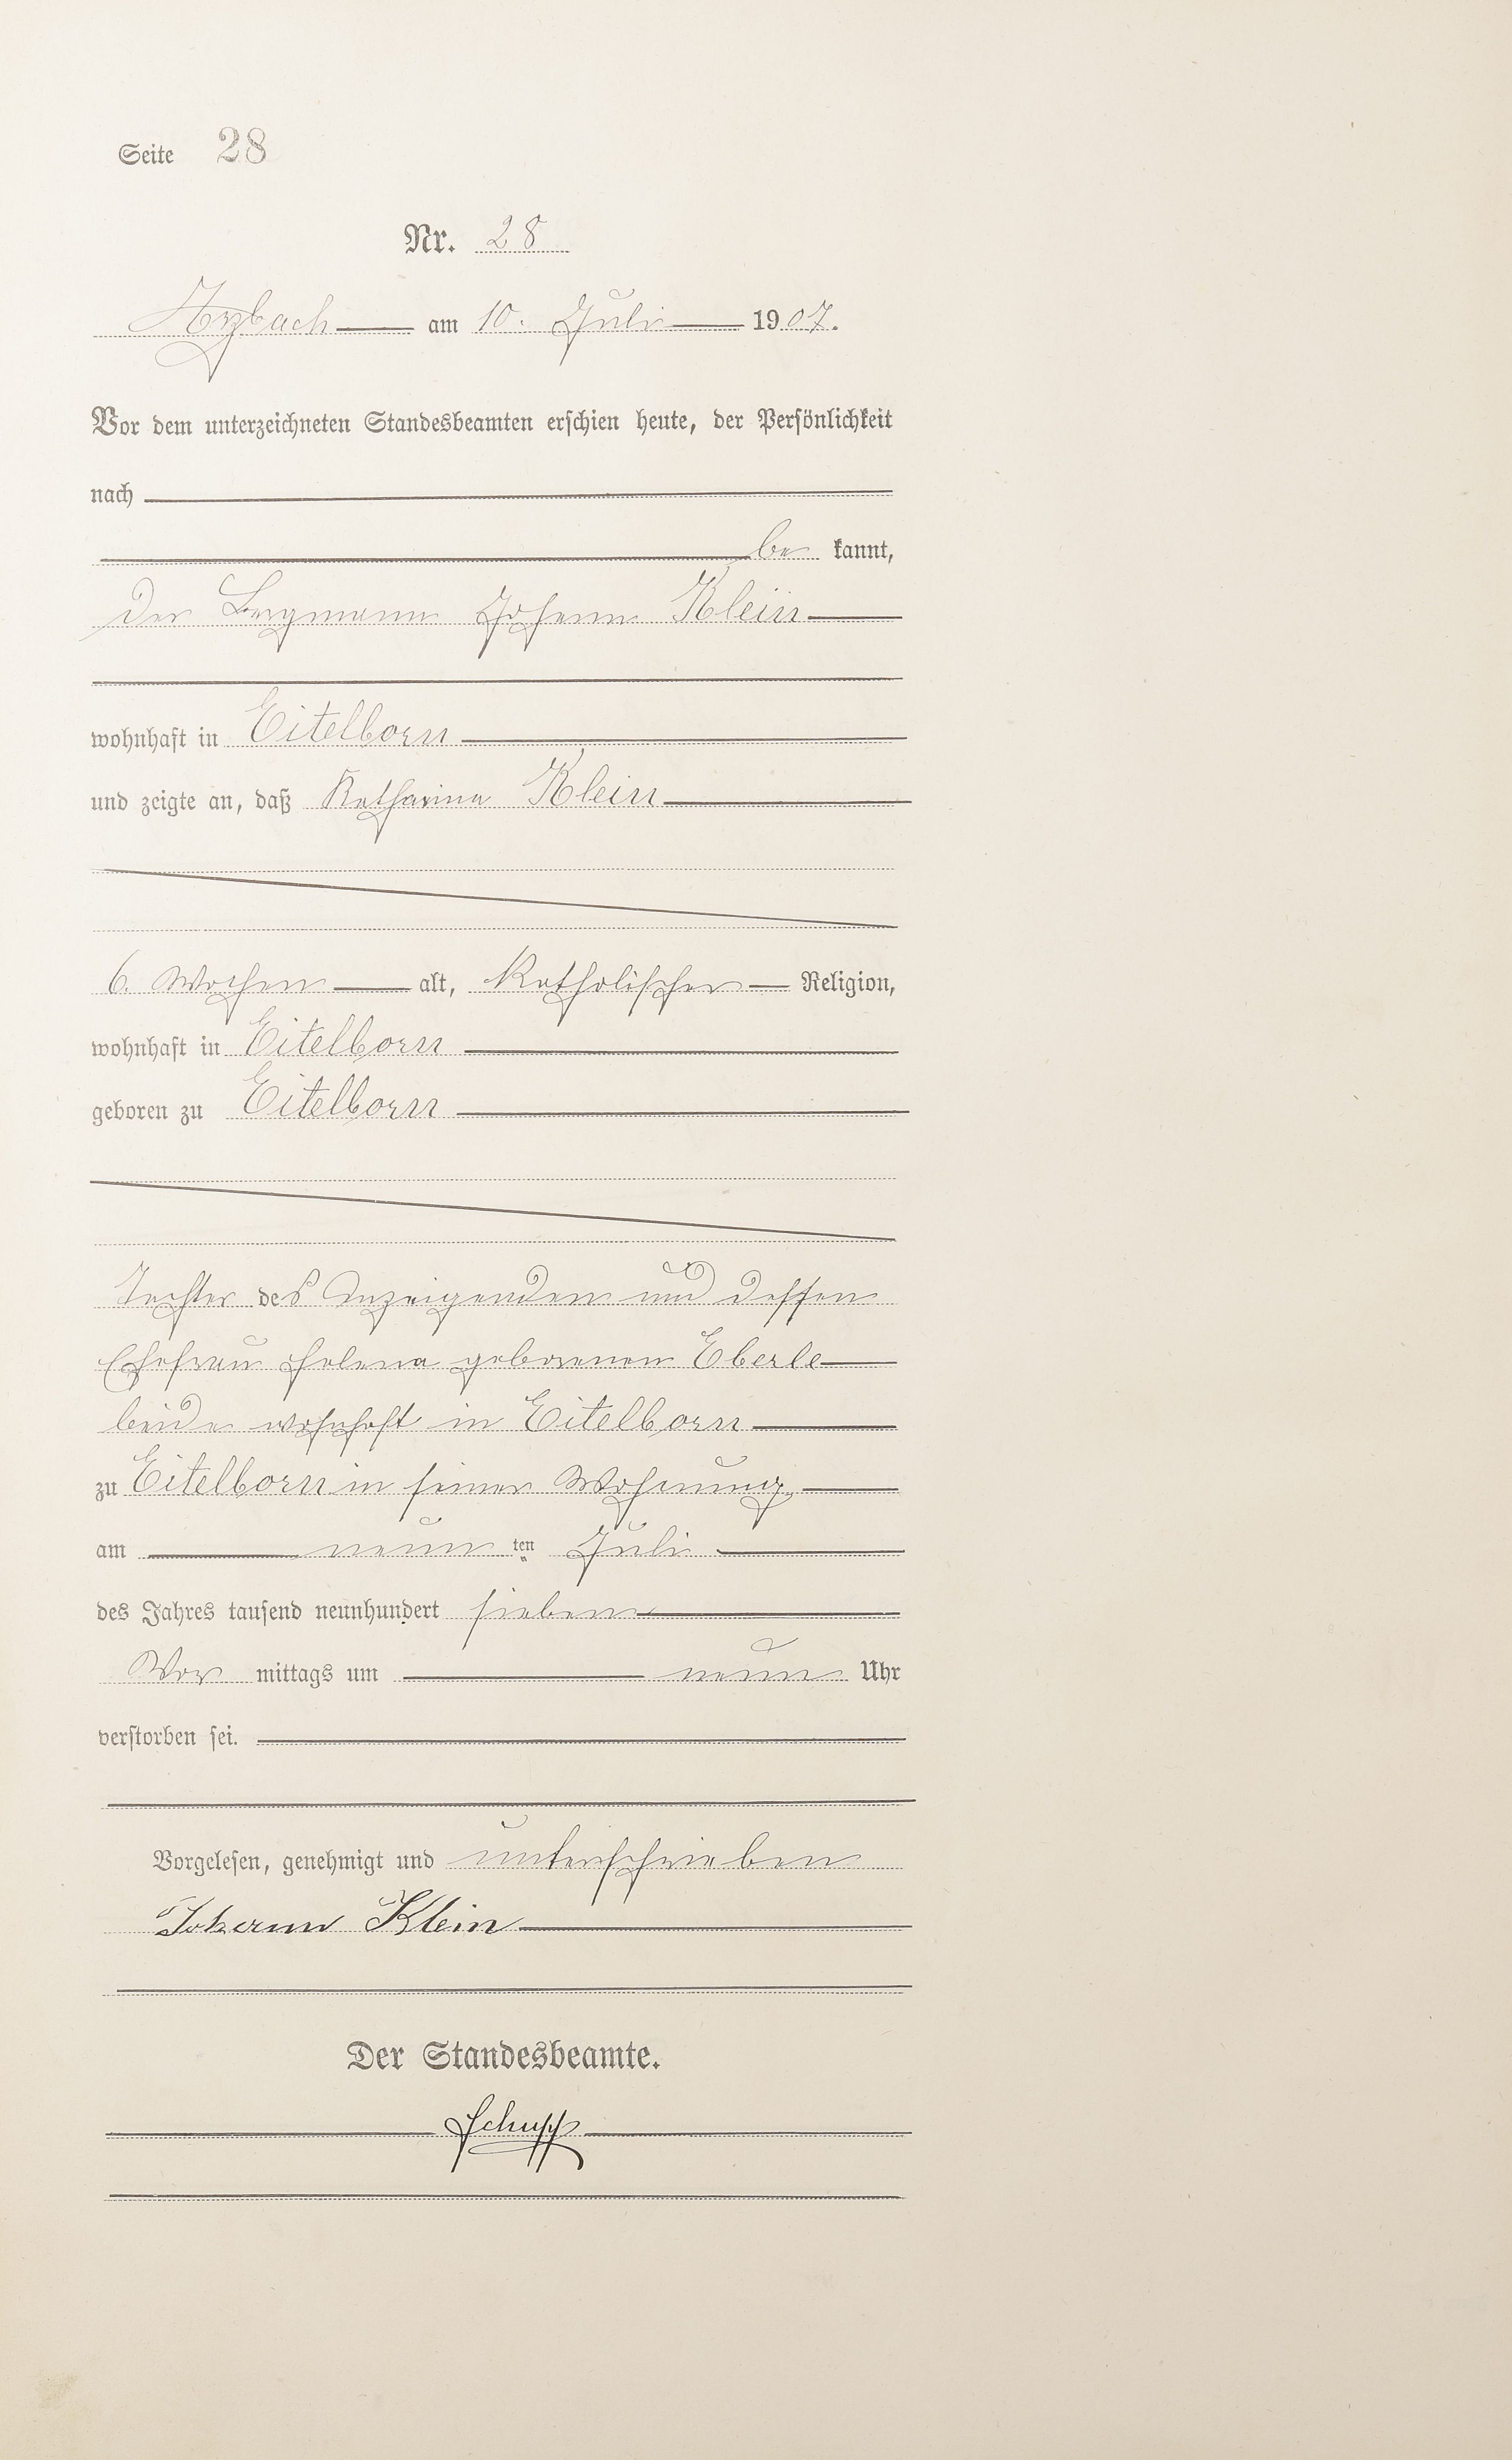 Seite 28
Nr. 28
Arzbach am 10. Juli 1907.
Vor dem unterzeichneten Standesbeamten erschien heute, der Persönlichkeit
nach
be kannt,
der Bergmann Johann Klein
wohnhaft in Eitelborn
und zeigte an, daß Katharina Klein
6. Wochen alt, Katholischer Religion,
wohnhaft in Eitelborn
geboren zu Eitelborn
Tochter des Anzeigenden und dessen
Ehefrau Helena geborenen Eberle
beide wohnhaft in Eitelborn
zu Eitelborn in seiner Wohnung
am neun ten Juli
des Jahres tausend neunhundert sieben
Vor mittags um neun Uhr
verstorben sei.
Vorgelesen, genehmigt und unterschrieben
Johann Klein
Der Standesbeamte.
Schupp